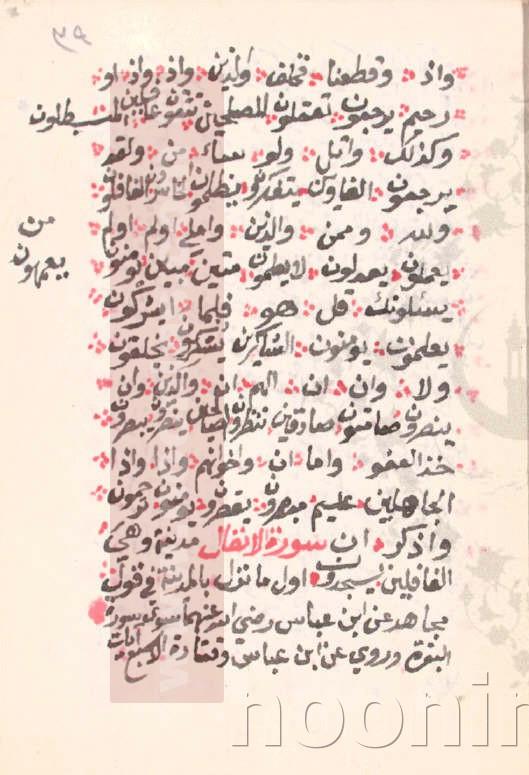 ٣٩
واذ وقطعنا فخلف والذين واذ واذ او
رحيم يرجعون تعقلون المصلحين تتقون غافلين المبطلون
وكذلك واتل ولو ساء من ولقد
يرجعون الغاوين يتفكرون يظلمون الخاسرون الغافلون
ولله وممن والذين واملي اولم اولم
يعملون يعدلون لا يعلمون متين مبين يؤمنون
من
يعمهون
يسئلونك قل هو فلما ايشركون
يعلمون يؤمنون الشاكرين يشركون يخلقون
ولا وان ان الهم ان والذين وان
ينصرون صامتون صادقين تنظرون الصالحين ينصرون يبصرون
خذ العفو واما ان واخوانهم واذا واذا
الجاهلين عليم مبصرون يقصرون يؤمنون ترحمون
واذكر ان سورة الانفال مدنية وهي
الغافلين يسجدون اول ما نزل بالمدينة في قول
مجاهد عن ابن عباس رضي الله عنهما سوى سورة
البقرة وروي عن ابن عباس وقتادة الا سبع آيات
noonir